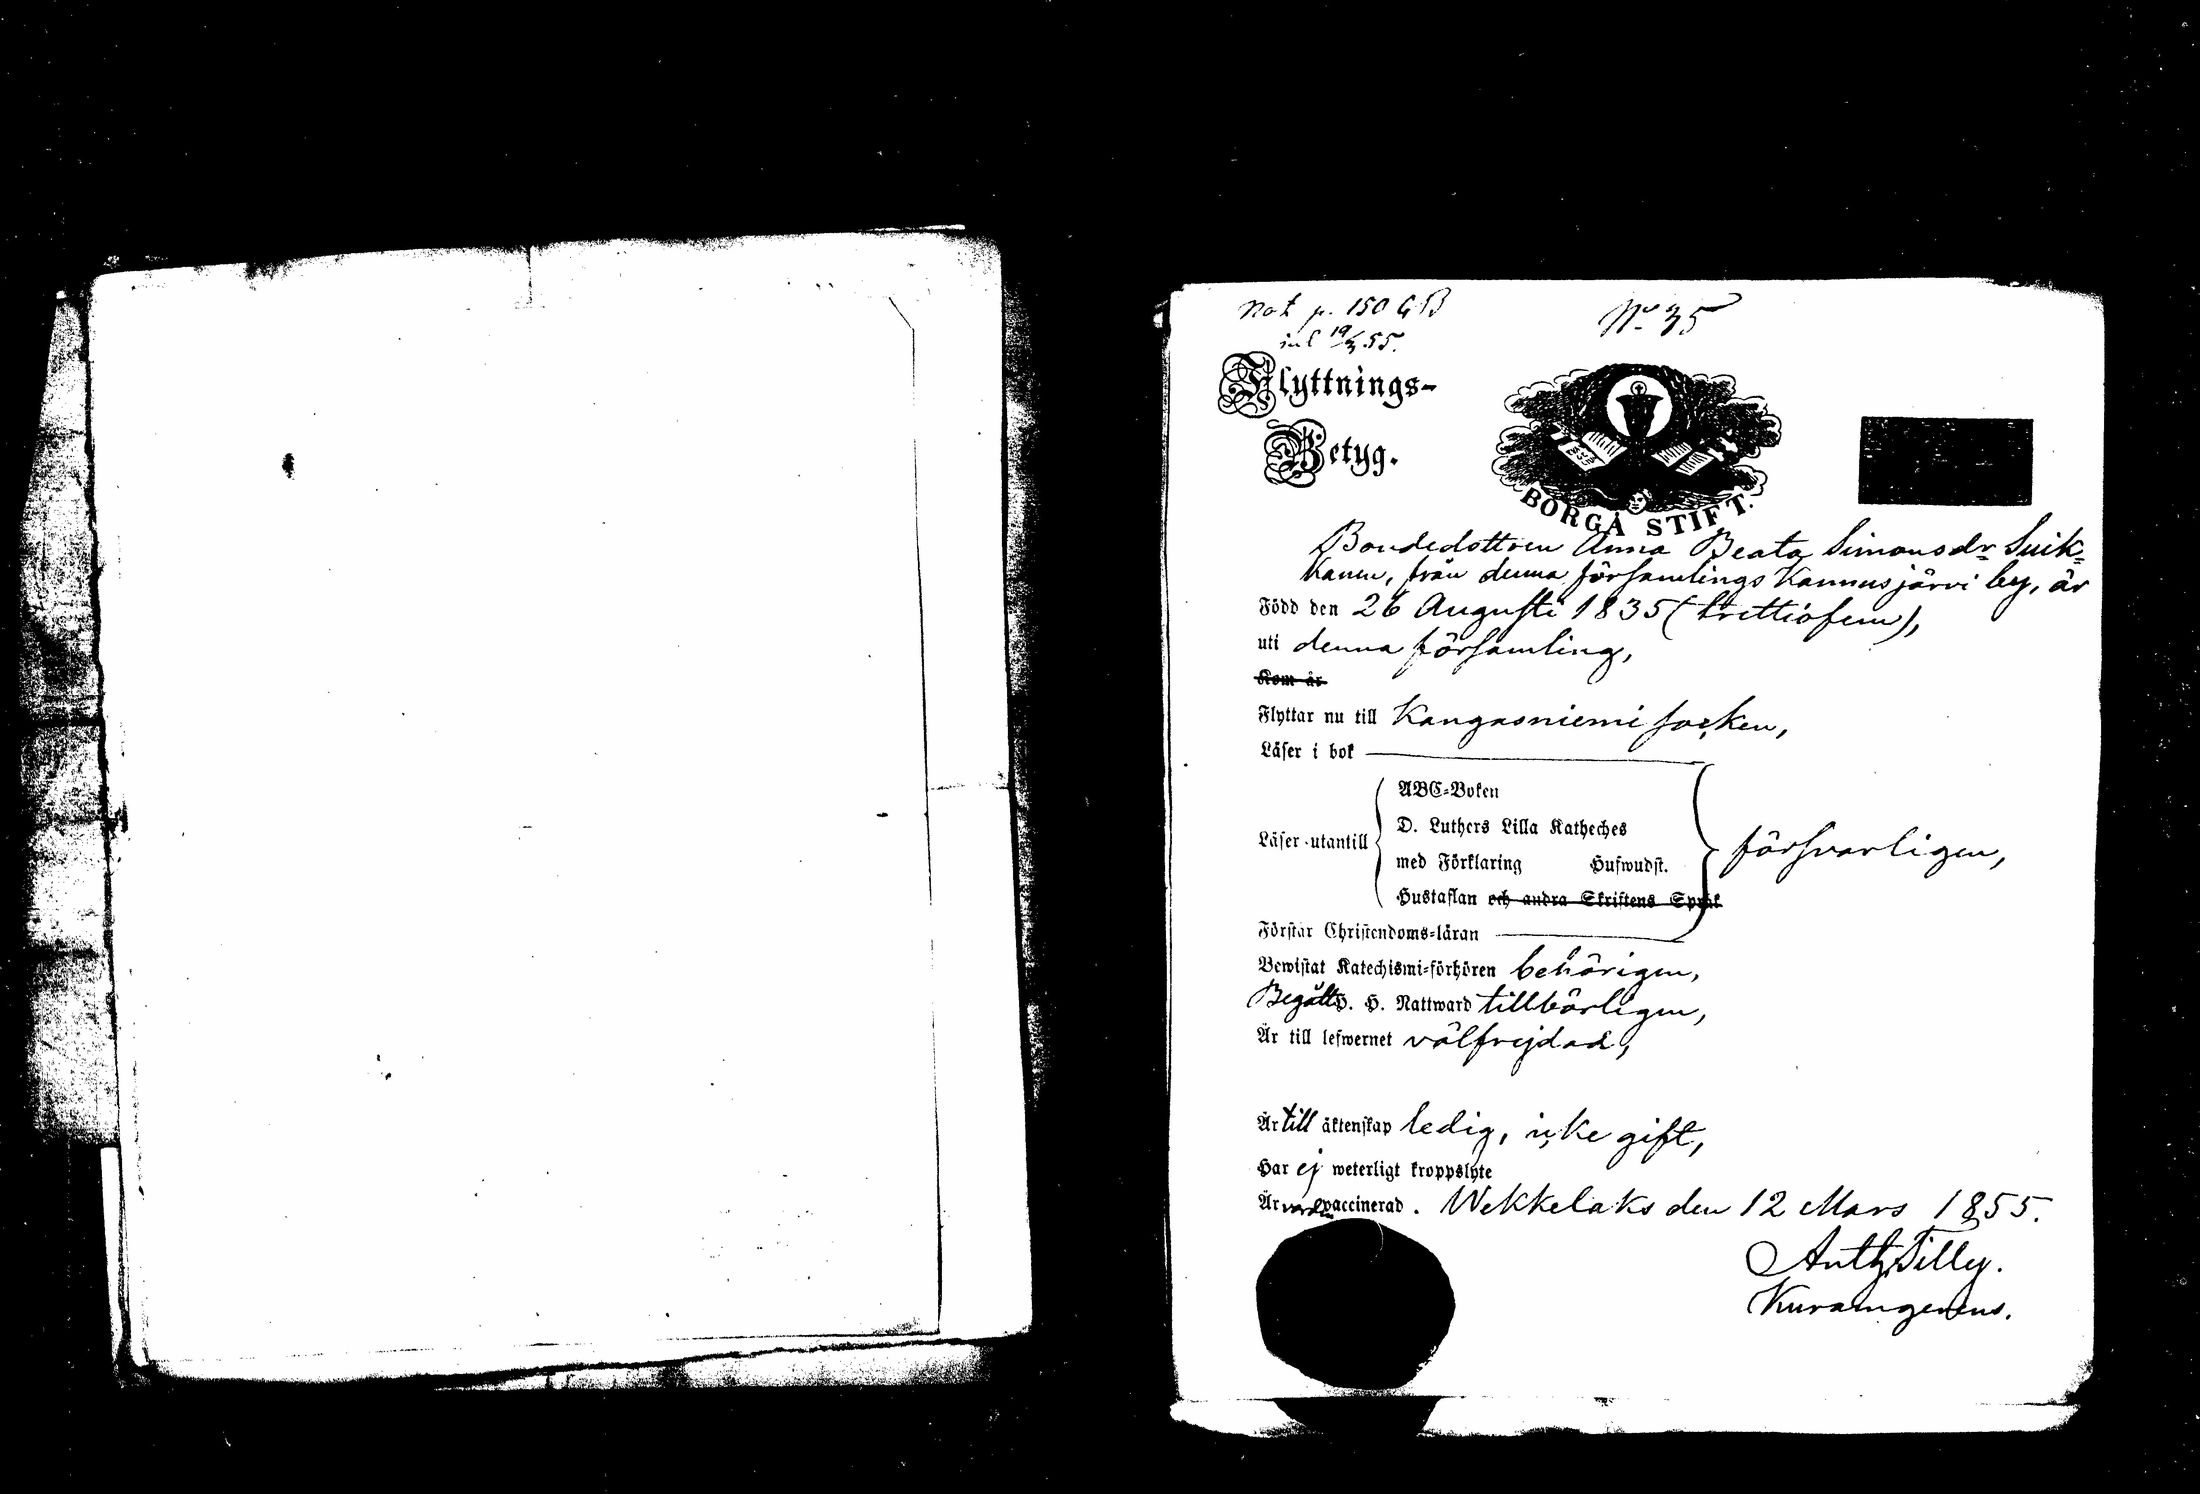 Not p. 150 GB
inl 19/3 55.
No 35
Flyttnings-
Betyg.
BORGÅ STIFT.
Bondedottren Anna Beata Simonsdr Suik=
kanen, från denna församlings Kannusjärvi by, är
Född den 26 Augusti 1835 (trettiofem),
uti denna församling,
Kom år
Flyttar nu till Kangasniemi socken,
Läser i bok
Läser utantill
ABC-Boken
D. Luthers Lilla Katheches
med Förklaring Hufwudst.
Hustaflan och andra Skriftens Språk
försvarligen,
Förstår Christendoms-läran
Bewistat Katechismi-förhören behörigen,
Begått H. H. Nattward tillbörligen,
Är till lefwernet välfrejdad,
Är till äktenskap ledig, icke gift,
Har ej weterligt kroppslyte
Är vorden vaccinerad. Wekkelaks den 12 Mars 1855.
Anth Tilly.